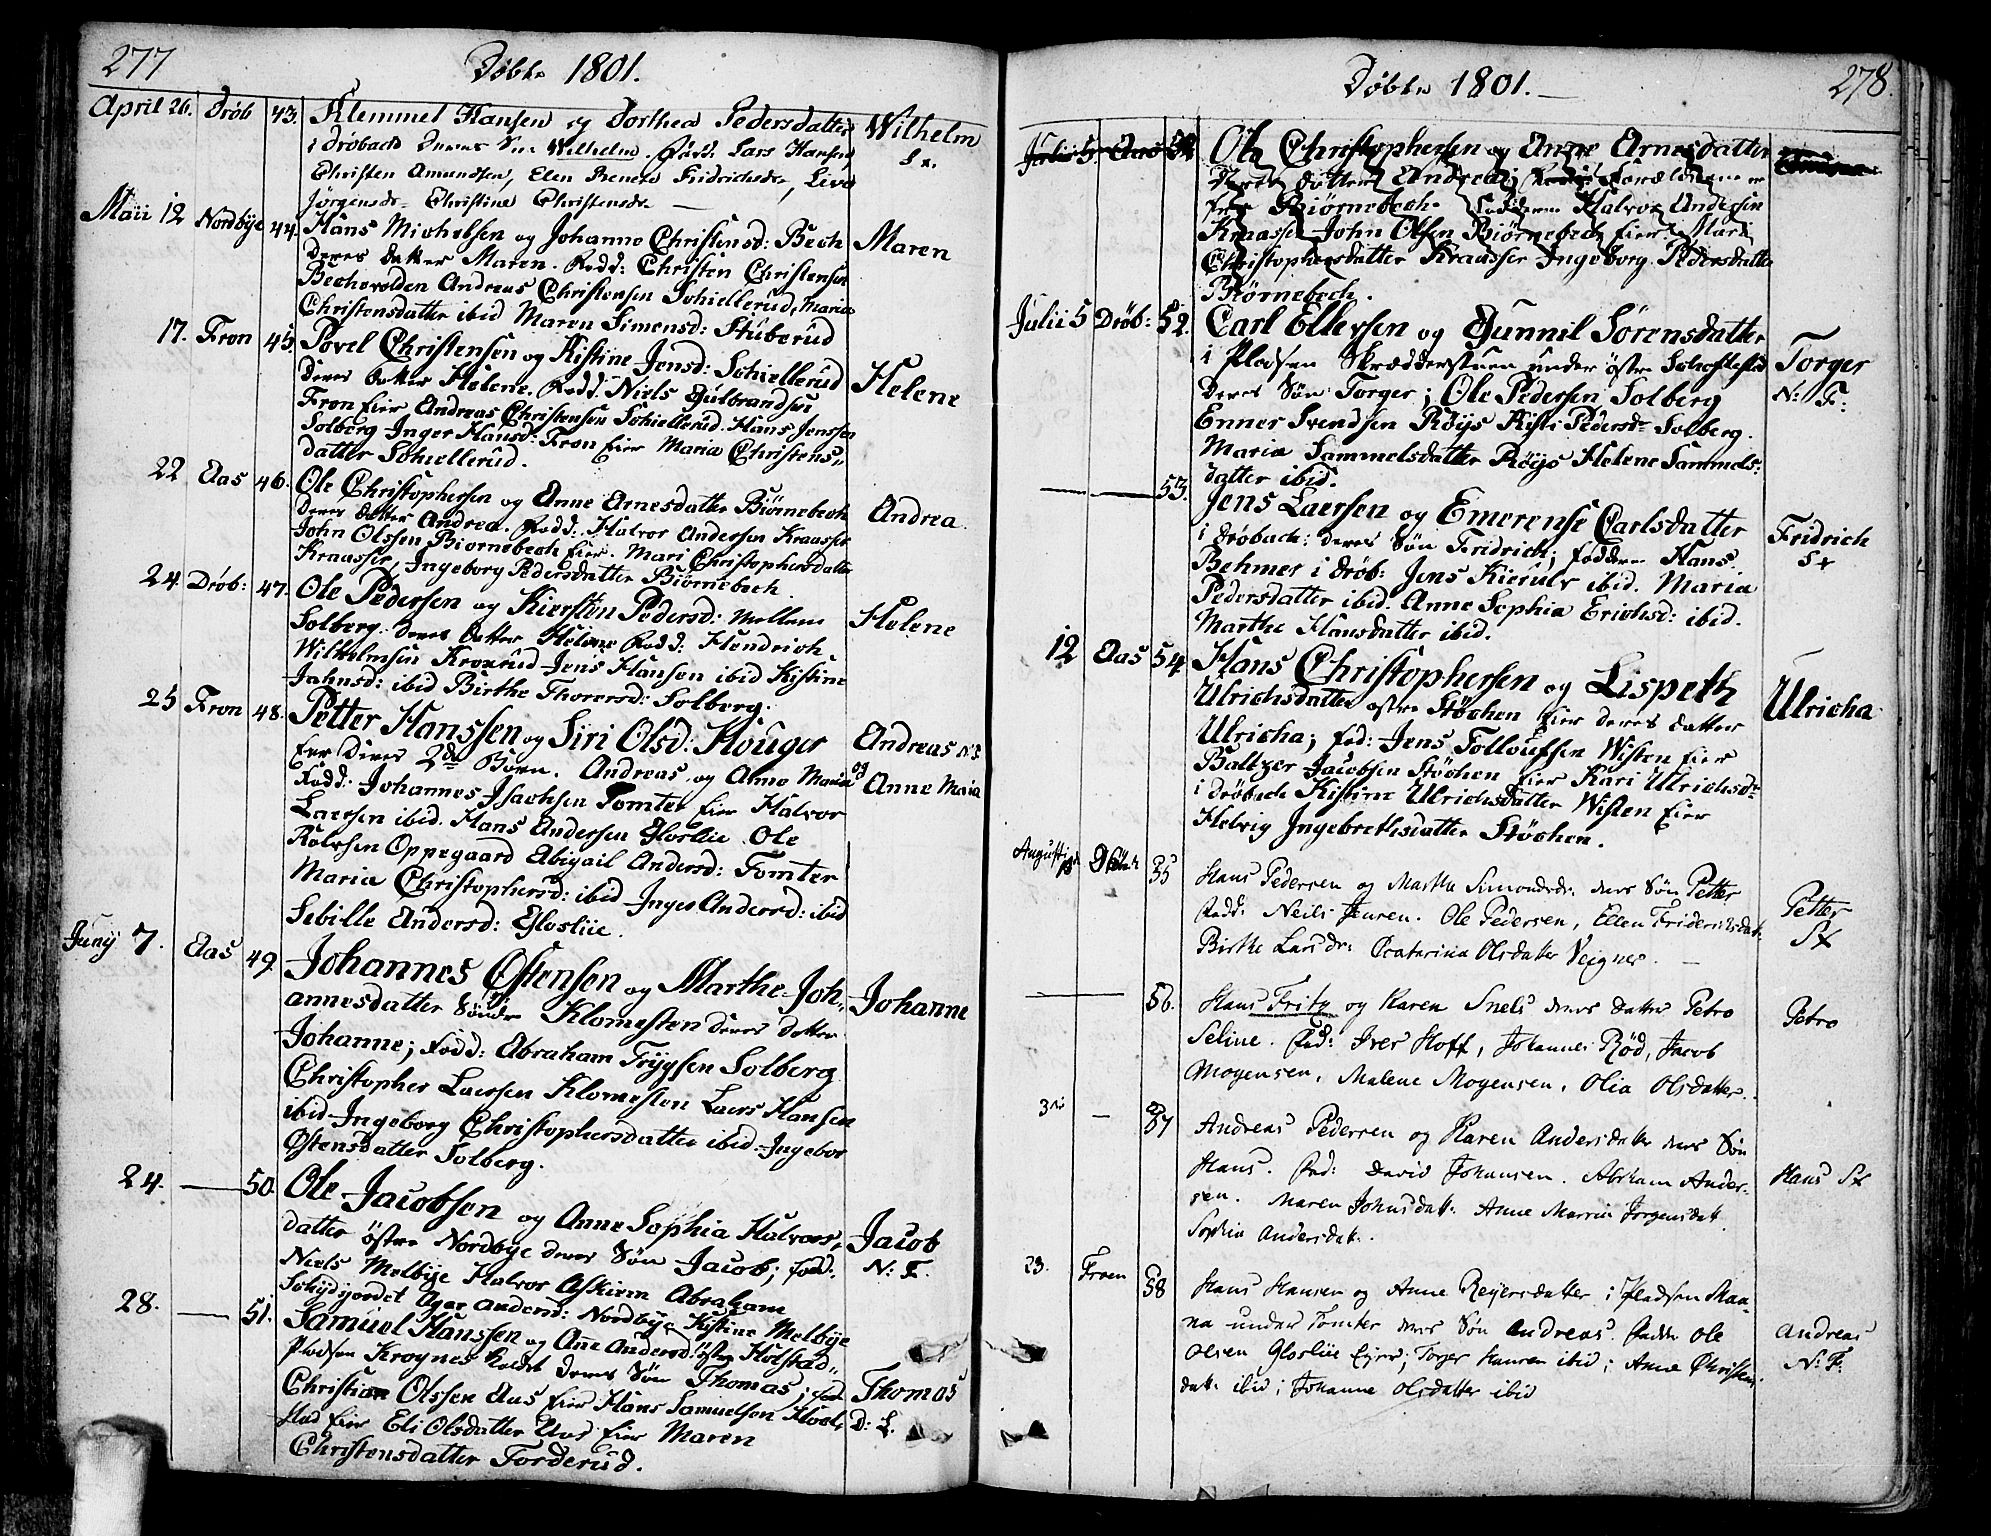 277
Døbte 1801.
April 26. Drøb 43. Klemmet Hansen og Dorthea Pedersdatter Wilhelm
i Drøbach Deres Søn Wilhelm. Fadd: Lars Hansen
Christen Amundsen, Elen Fridrichsdr, Live
Jørgensdr Christine Christensdr
Maii 12 Nordbye 44. Hans Michelsen og Johanne Christensd: Bech Maren
deres datter Maren. Fadd: Christen Christensen
Bechevolden Andreas Christensen Schiellerud, Maria
Christensdatter ibid Maren Simensd: Stuberud
17. Fron 45. Povel Christensen og Kistine Jensd: Schiellerud Helene
deres datter Helene. Fadd: Niels Gulbrandsen
Fron Eier Andreas Christensen Schiellerud. Hans Jenssen
Solberg Inger Hansd: Fron Eier Maria Christens-
datter Schiellerud.
22 Aas 46. Ole Christophersen og Anne Arnesdatter Biørnebech Andrea
deres datter Andrea. Fadd: Halvor Andersen Kraasser
John Olssen Biørnebech Eier. Mari Christophersdatter
Kraasser, Ingeborg Pedersdatter Biørnebech.
24. Drøb: 47. Ole Pedersen og Kiersten Pedersd: Mellem Helene
Solberg. deres datter Helene Fadd: Hendrich
Wilhelmsen Kroxrud Jens Hansen ibid Kistine
Jahnsd: ibid Birthe Thorersd: Solberg.
25 Fron 48. Petter Hanssen og Siri Olsd: Houger Andreas N: F
Eier Deres 2de Børn. Andreas og Anne Maria og Anne Maria
Fadd: Johannes Isachsen Tomter Eier Halvor
Laersen ibid. Hans Andersen Gloslie Ole
Rolvsen Oppegaard Abigail Andersd: Tomter
Maria Christophersd: ibid Inger Andersd: ibid
Sebille Andersd: Gloslie.
Junij 7. Aas 49. Johannes Østensen og Marthe Joh- Johanne
annesdatter Søndr Klomesten deres datter
Johanne; Fadd: Abraham Trygsen Solberg
Christopher Laersen Klomesten Laers Hansen
ibid Ingeborg Christophersdatter ibid Ingebor
Østensdatter Solberg.
24. — 50. Ole Jacobsen og Anne Sophia Halvors- Jacob
datter østre Nordbye deres Søn Jacob; fad: N: F.
Niels Melbye Halvor Askiem Abraham
Schydjordet Ager Andersd: Nordbye Kistine Melbye
28. — 51. Samuel Hanssen og Ane Andersd: østre Holstad Thomas
Pladsen Krognes deres Søn Thomas; fad D: L.
Christian Olssen Aas Eier Hans Samuelsen Hol-
stad Eier Eli Olsdatter Aas Eier Maren
Christensdatter Forderud.
Døbte 1801. 278.
Julii 5 Aas 52 Ole Christophersen og Anne Arnesdatter
Deres datter Andrea; Forældrene er
fra Biørnebech. Faddere Halvor Andersen
Kraasser John Olsen Biørnebech Eier Mari
Christophersdatter Kraasser Ingeborg Pedersdatter
Biørnebech.
Julii 5 Drøb: 52. Carl Ellevsen og Gunnil Sørensdatter Torger
i Pladsen Skrædderstuen under østre Schoftestad N: F:
Deres Søn Torger; Ole Pedersen Solberg
Enner Svendsen Røys Kisti Pedersdr Solberg.
Maria Sammelsdatter Røys Helene Sammels:
datter ibid.
— — 53. Jens Laersen og Emerense Carlsdatter Fridrich
i Drøbach: deres Søn Fridrich; faddere Hans
Behmer i Drøb: Jens Kierulv ibid. Maria
Pedersdatter ibid. Anne Sophia Erichsd: ibid.
Marthe Hansdatter ibid.
12 Aas 54. Hans Christophersen og Lispeth Ulricha
Ulrichsdatter østre Støchen Eier deres datter
Ulricha; fad: Jens Tollovfsen Wisten Eier
Baltzer Jacobsen Støchen Eier Kari Ulrichsdr
i Drøbach Kistine Ulrichsdatter Wisten Eier
Helvig Ingebrethsdatter Støchen.
Augusti 55 Hans Pedersen og Martha Simonsdr. deres Søn Petter Petter
Fadd: Neils Jensen. Ole Pedersen, Ellen Friderichsdat:
Birthe Larsdr: Catarina Olsdatter Veigner.
— 56. Hans Fritz og Karen Snels deres datter Petro Petro
Seline. Fad: Iver Hoff, Johannes Rød, Jacob
Mogensen, Malene Mogensen, Olia Olsdatter.
— 57 Andreas Pedersen og Karen Andersdatter deres Søn Hans
Hans. Fad: David Johansen. Abraham Ander-
sen. Maren Johnsdat: Anne Marria Jørgensdat.
Sophia Andersdat:
23. Froen 58 Hans Hansen og Anne Reyersdatter i Pladsen Maa- Andreas
na under Tomter deres Søn Andreas. Fadd: Ole N: F:
Olsen Gloslie Eier; Torger Hansen ibid; Anne Christens
dat: ibid; Johanne Olsdatter ibid